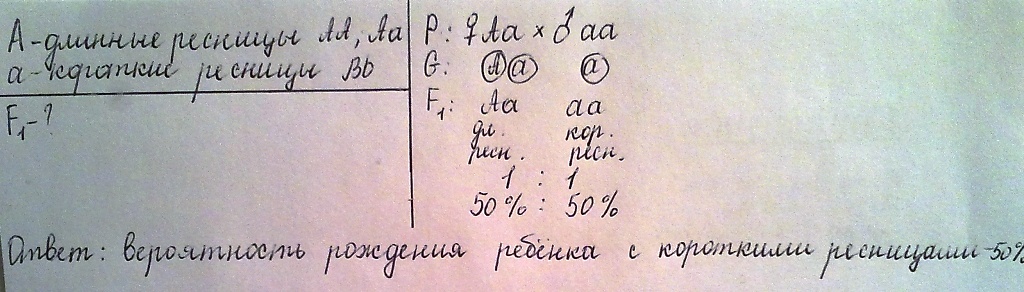 А-длинные ресницы АА, Аа
а-короткие ресницы Bb
F₁-?
P: ♀ Aa × ♂ aa
G: A a a
F₁: Aa aa
дл. кор.
ресн. ресн.
1 : 1
50% : 50%
Ответ: вероятность рождения ребёнка с короткими ресницами-50%